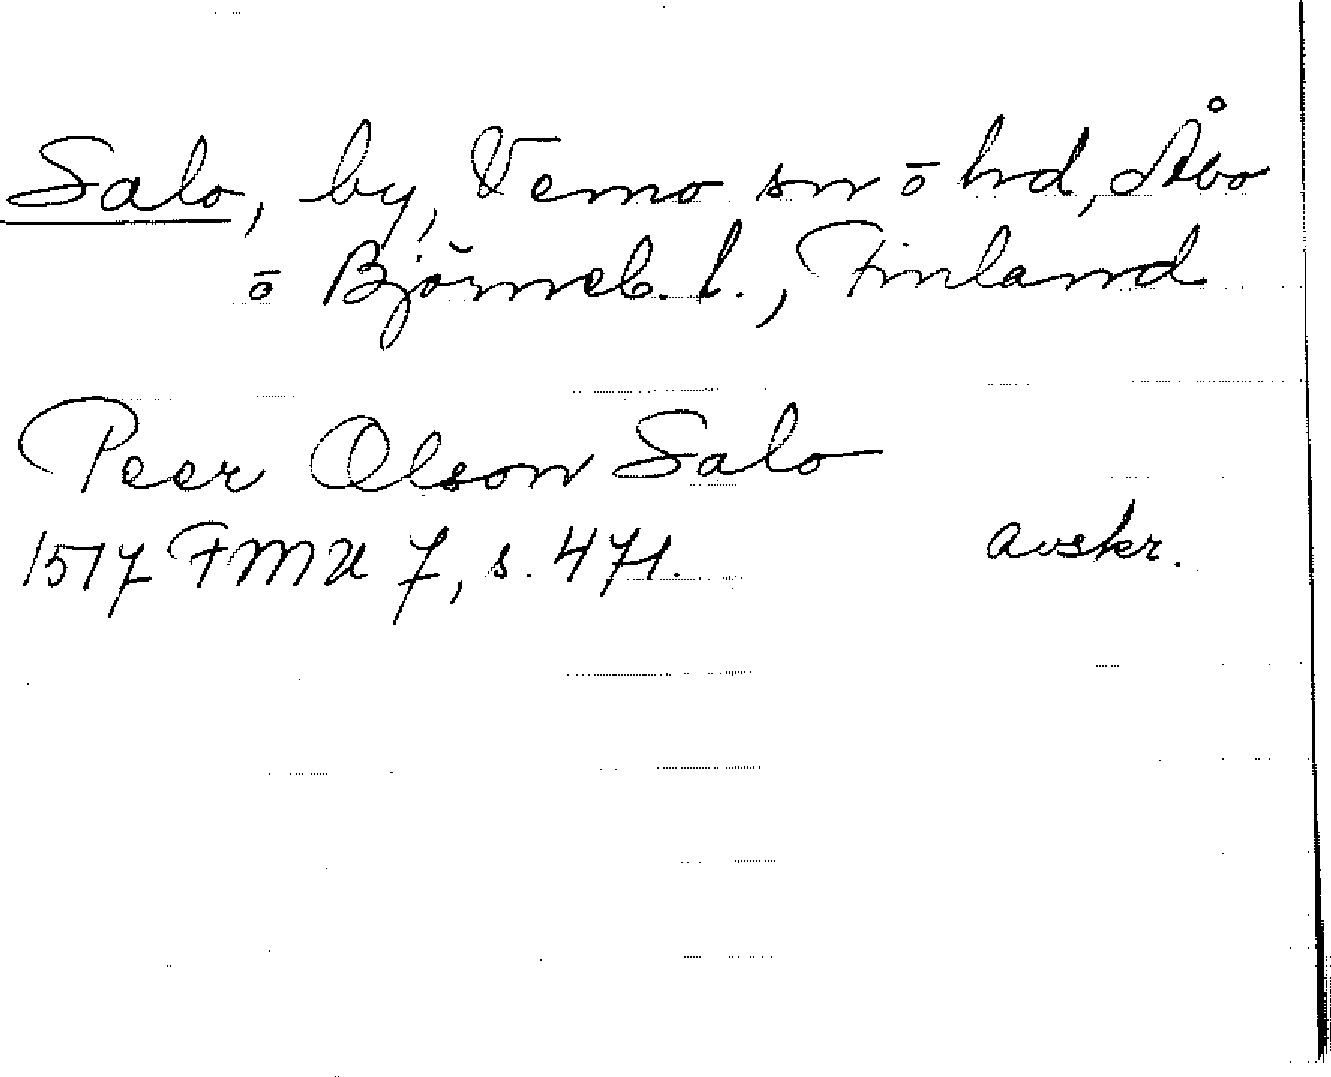 Salo, by, Vemo sn ō hd, Åbo
ō Björneb. l., Finland
Peer Olson Salo
1517 FMU 7, s. 471. avskr.